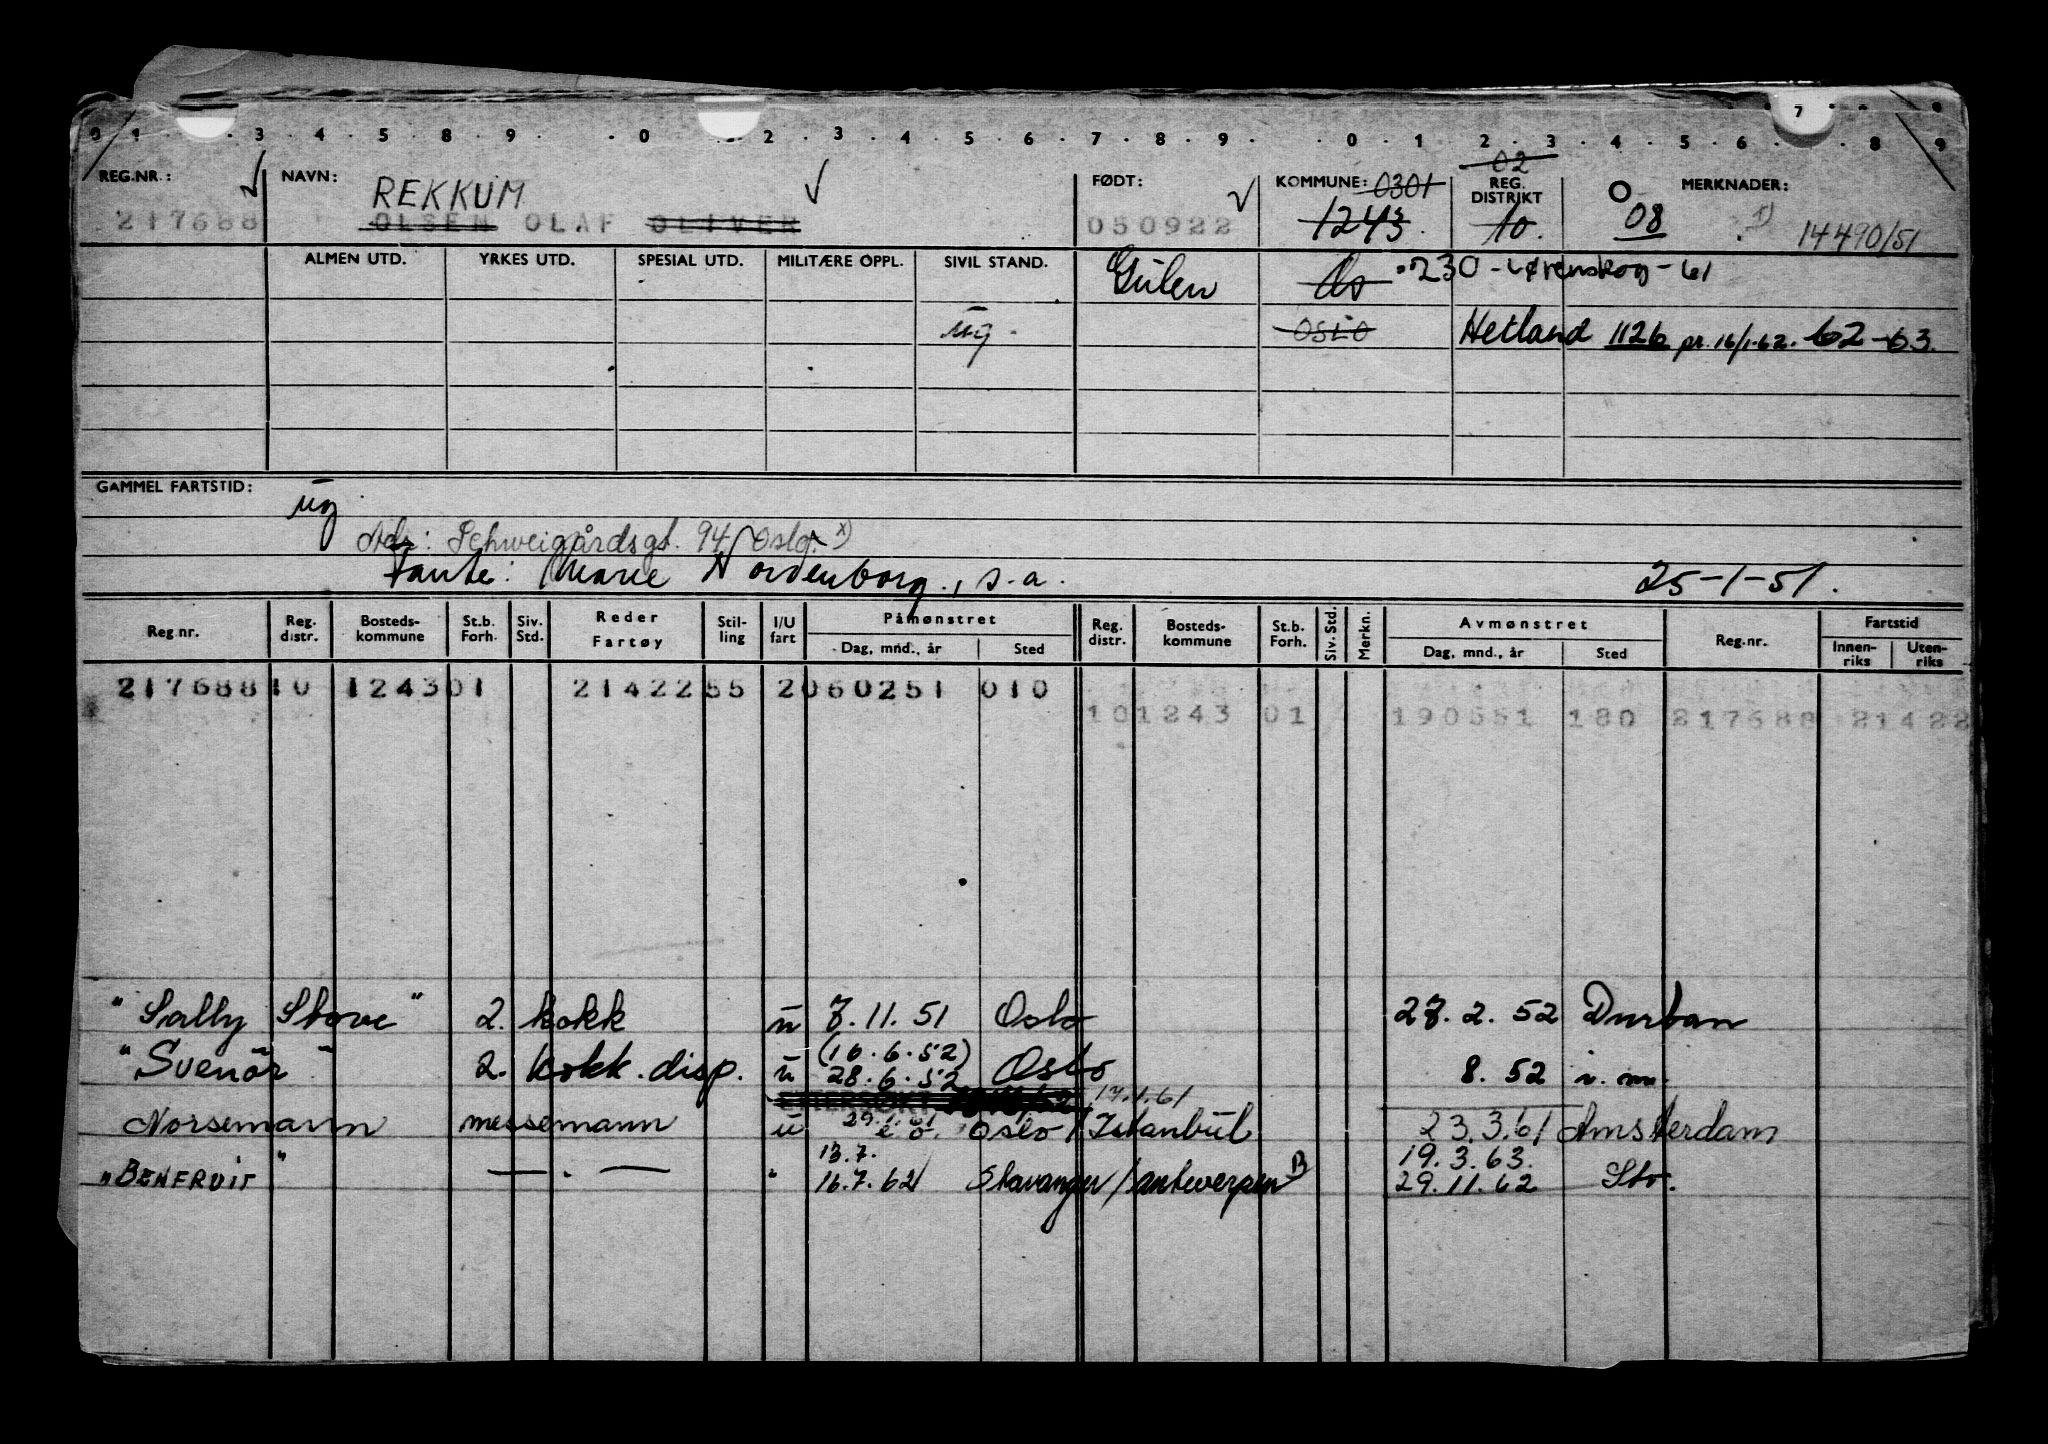 0 1 3 4 5 8 9 0 2 3 4 5 6 7 8 9 0 1 2 3 4 5 6 7 8 9
REG.NR.: NAVN: FØDT: KOMMUNE: 0301 02 REG. DISTRIKT MERKNADER:
REKKUM
217688 OLSEN OLAF OLIVER 050922 1243 10. 08 14490/51
ALMEN UTD. YRKES UTD. SPESIAL UTD. MILITÆRE OPPL. SIVIL STAND. Gulen Os 230 - Lørenskog - 61
ug. OSLO Hetland 1126 pr. 16/1-62. 62-63.
GAMMEL FARTSTID: ug
Adr: Schweigårdsgt. 94, Oslo. x)
Tante: Marie Nordenborg, s.a. 25-1-51.
Reg.nr. Reg. distr. Bosteds-kommune St.b. Forh. Siv. Std. Reder Fartøy Stil-ling I/U fart Påmønstret Reg. distr. Bosteds-kommune St.b. Forh. Siv. Std. Merkn. Avmønstret Reg.nr. Fartstid
Dag, mnd., år Sted Dag, mnd., år Sted Innen-riks Uten-riks
217688 10 1243 01 21422 55 2 060251 010
10 1243 01 190551 180 217688 21422
"Sally Stove" 2. kokk u 7.11.51 Oslo 27.2.52 Durban
"Svenør" 2. kokk. disp. u (16.6.52) 28.6.52 Oslo 8.52 i. m.
17.1.61
Norsemann messemann u 29.1.61 Oslo / Istanbul 23.3.61 Amsterdam
13.7. 19.3.63.
"BENFRUIT" — . — " 16.7.62 Stavanger / antwerpen B 29.11.62 Stv.